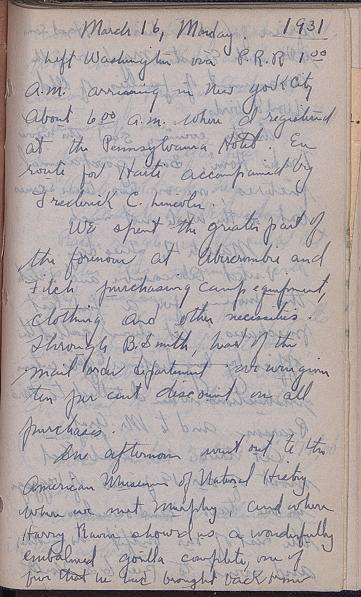 March 16, Monday. 1931
Left Washington via P.R.R 1.00
A.M. arriving in New York City
about 6.00 a.m. where I registered
at the Pennsylvania Hotel. En
route for Haiti accompanied by
Frederick C. Lincoln.
We spent the greater part of
the forenoon at Abercrombie and
Fitch purchasing camp equipment,
clothing and other necessities.
Through B. Smith, head of the
mail order department we were given
ten per cent discount on all
purchases.
In afternoon went out to the
American Museum of Natural History
where we met Murphy, and where
Harry Raven showed us a wonderfully
embalmed gorilla complete, one of
four that he had brought back from